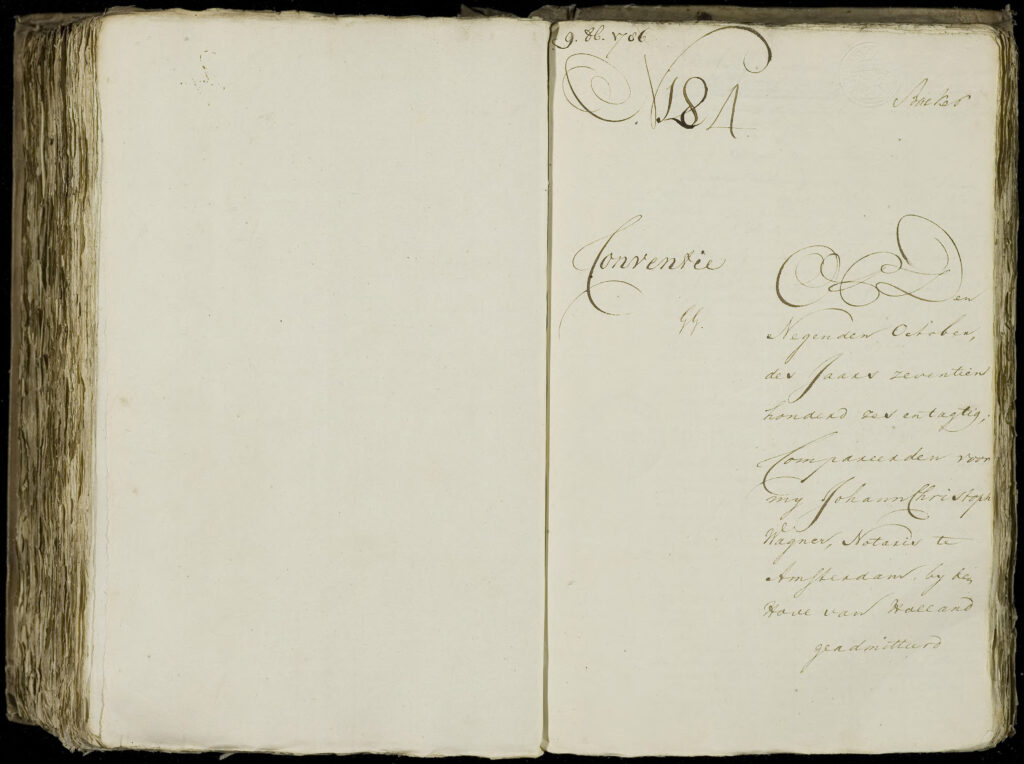 9. 8b. 1786
N. 184
Conventie
gg.
Den
Negenden October,
des Jaars zeventien
honderd zes entagtig;
Compareerden voor
my Johann Christoph
Wagner, Notaris te
Amsterdam, by den
Hove van Holland
geadmitteerd